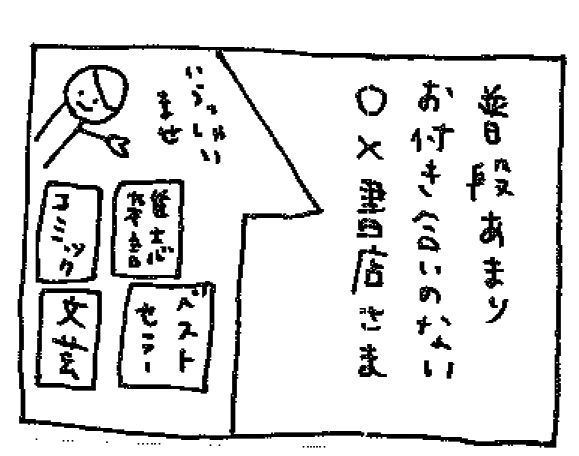 普段あまり
お付き合いのない
○×書店さま
いらっしゃい
ませ
コミック
ベスト
セラー
文芸